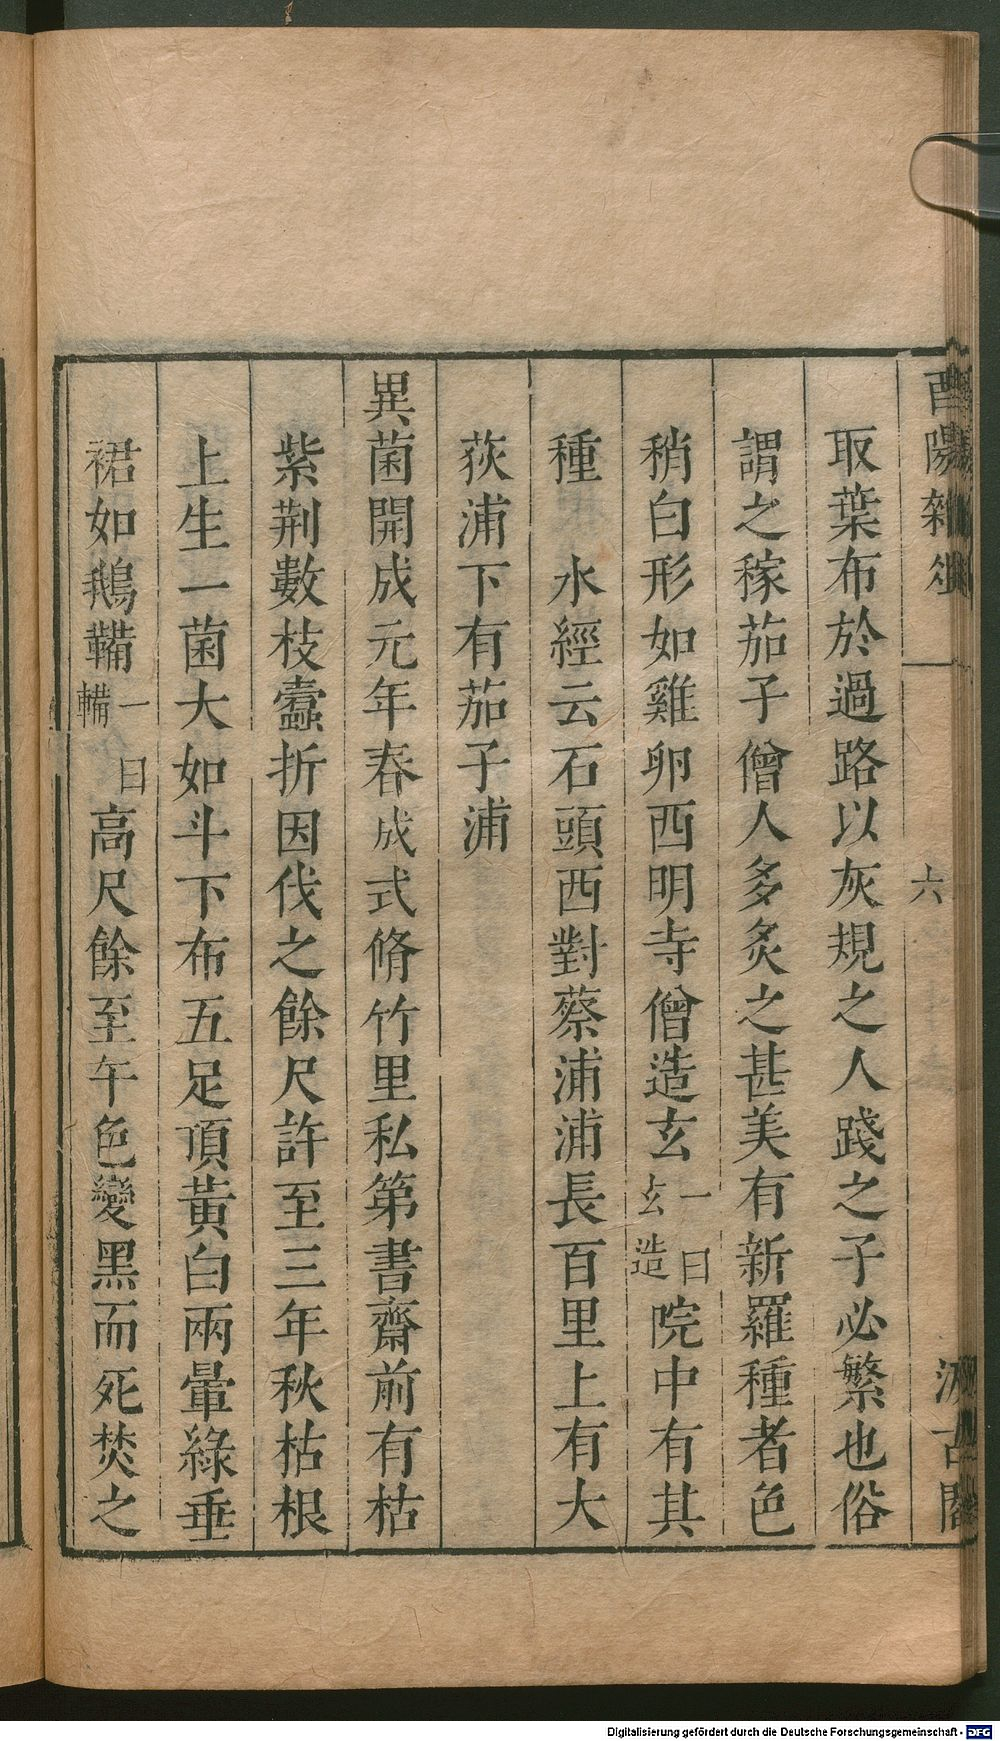 酉陽雜俎
六
汲古閣
取葉布於過路以灰規之人踐之子必繁也俗
謂之稼茄子僧人多炙之甚美有新羅種者色
稍白形如雞卵西明寺僧造玄一曰玄造院中有其
種　水經云石頭西對蔡浦浦長百里上有大
荻浦下有茄子浦
異菌開成元年春成式脩竹里私第書齋前有枯
紫荆數枝蠹折因伐之餘尺許至三年秋枯根
上生一菌大如斗下布五足頂黃白兩暈綠垂
裙如鵝鞴一曰輔高尺餘至午色變黑而死焚之
Digitalisierung gefördert durch die Deutsche Forschungsgemeinschaft - DFG